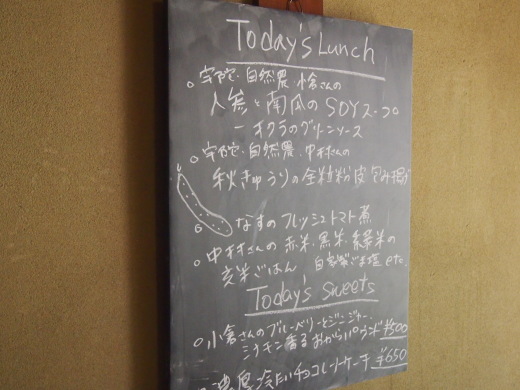 Today's Lunch
。宇陀・自然農 小倉さんの
人参と南瓜のSOYスープ
ーオクラのグリーンソース
。宇陀・自然農 中村さんの
秋きゅうりの全粒粉皮包み揚げ
。なすのフレッシュトマト煮
。中村さんの 赤米・黒米・緑米の
玄米ごはん 自家製ごま塩 etc.
Today's Sweets
。小倉さんのブルーベリーとジンジャー、
シナモン香るおからパウンド ¥500
。濃厚冷たいチョコレートケーキ ¥650